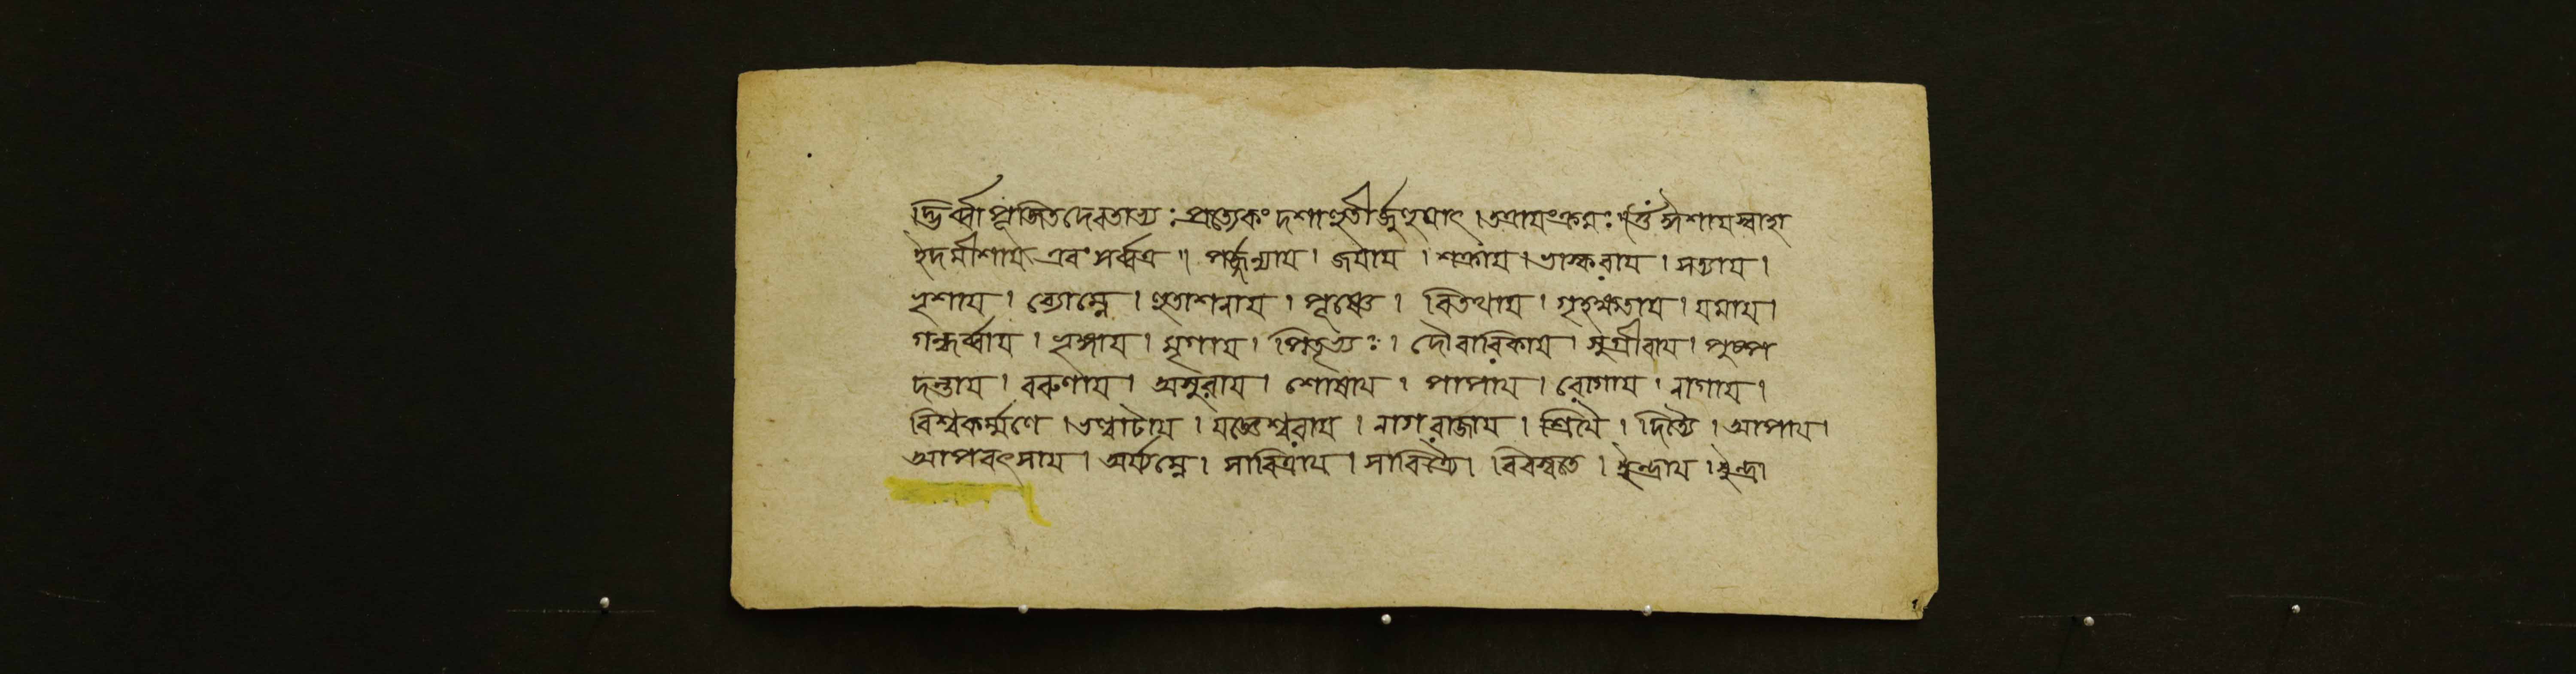 দ্ভির্ব্বা পূজিতদেবতাভ্যঃ প্রত্যেকং দশাহুতীর্জুহুয়াৎ । তত্রায়ংক্রমঃ ॥ ওঁ ঈশায়স্বাহা
ইদমীশায় এবং সর্ব্বত্র ॥ পর্জ্জন্যায় । জয়ায় । শক্রায় । ভাস্করায় । সত্যায় ।
ভৃশায় । ব্যোম্নে । হুতাশনায় । পূষ্ণে । বিতথায় । গৃহক্ষতায় । যমায় ।
গন্ধর্ব্বায় । ভৃঙ্গায় । মৃগায় । পিতৃভ্যঃ । দৌবারিকায় । সুগ্রীবায় । পুষ্প
দন্তায় । বরুণায় । অসুরায় । শোষায় । পাপায় । রোগায় । নাগায় ।
বিশ্বকর্ম্মণে । ভল্বাটায় । যজ্ঞেশ্বরায় । নাগরাজায় । শ্রিয়ৈ । দিত্যৈ । আপায় ।
আপবৎসায় । অর্য্যম্নে । সাবিত্রায় । সাবিত্র্যৈ । বিবস্বতে । ইন্দ্রায় । ইন্দ্রা